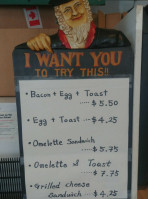 I WANT YOU
TO TRY THIS!!
• Bacon + Egg + Toast
$5.50
• Egg + Toast - $4.25
• Omelette Sandwich
$5.75
• Omelette & Toast
$7.75
• Grilled cheese
Sandwich - $4.25